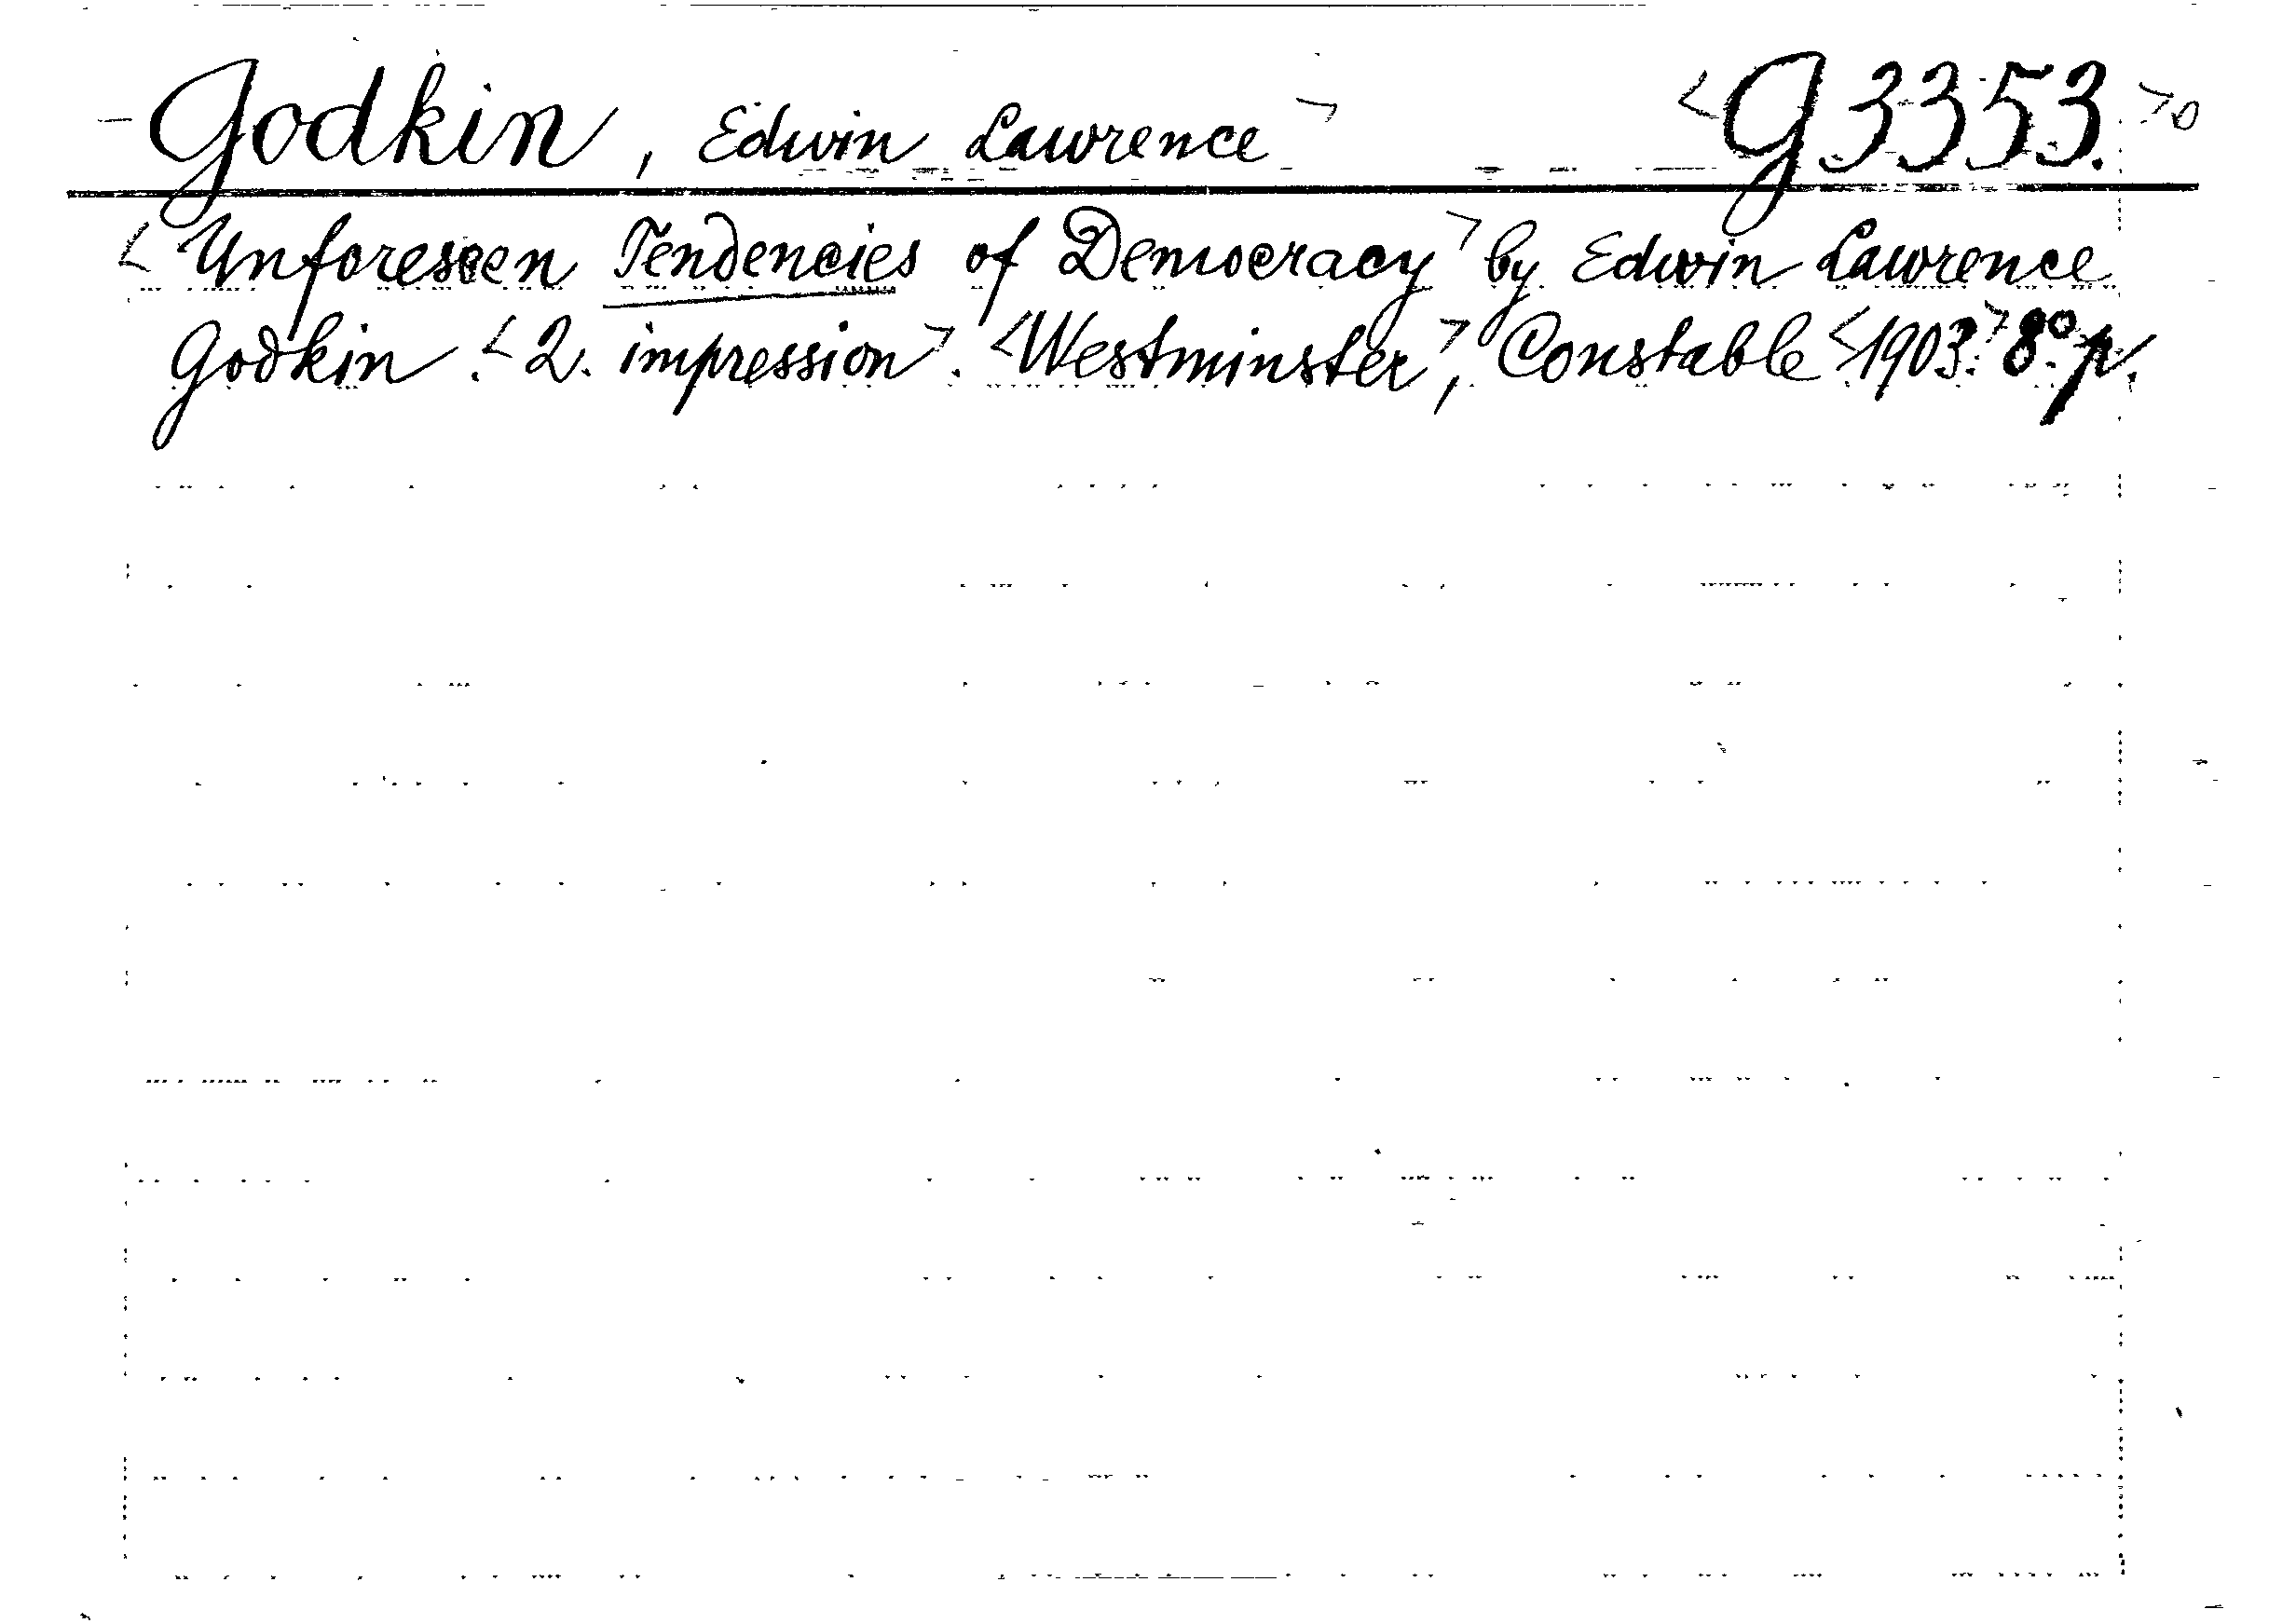 Godkin, Edwin Lawrence> <G 3353.>0
<Unforeseen Tendencies of Democracy> by Edwin Lawrence
Godkin. <2. impression>. <Westminster>, Constable <1903.> 8° p.